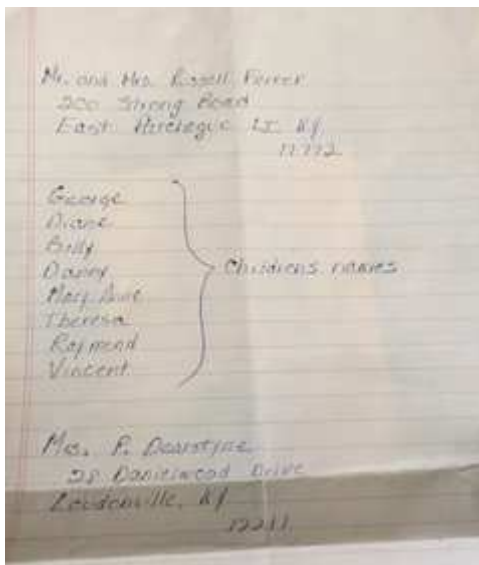 Mr. and Mrs. Russell Ferrer
200 Strong Road
East Patchogue LI. NY
11772
George
Diane
Billy
Danny
Mary Anne
Theresa
Raymond
Vincent
Childrens names
Mrs. P.
28 Danielwood Drive
Loudonville, NY
12211